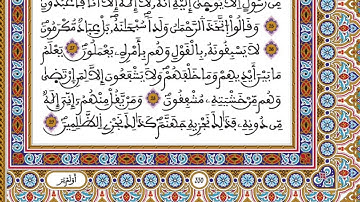 مِن رَّسُولٍ إِلَّا يُوحَىٰ إِلَيْهِ أَنَّهُ لَا إِلَٰهَ إِلَّا أَنَا فَاعْبُدُونِ
وَقَالُوا اتَّخَذَ الرَّحْمَٰنُ وَلَدًا سُبْحَٰنَهُ بَلْ عِبَادٌ مُّكْرَمُونَ
لَا يَسْبِقُونَهُ بِالْقَوْلِ وَهُم بِأَمْرِهِ يَعْمَلُونَ يَعْلَمُ
مَا بَيْنَ أَيْدِيهِمْ وَمَا خَلْفَهُمْ وَلَا يَشْفَعُونَ إِلَّا لِمَنِ ارْتَضَىٰ
وَهُم مِّنْ خَشْيَتِهِ مُشْفِقُونَ وَمَنْ يَّقُلْ مِنْهُمْ إِنِّيَ إِلَٰهٌ
مِّن دُونِهِ فَذَٰلِكَ نَجْزِيهِ جَهَنَّمَ كَذَٰلِكَ نَجْزِي الظَّٰلِمِينَ
أَوَلَمْ يَرَ
330